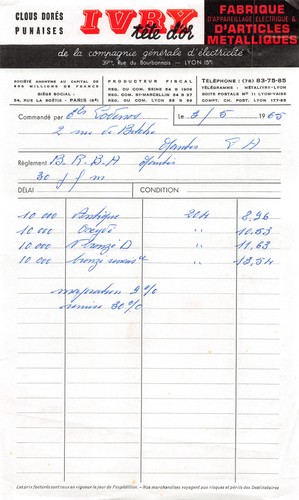 CLOUS DORÉS
PUNAISES
IVRY
tête d'or
FABRIQUE
D'APPAREILLAGE ELECTRIQUE &
D'ARTICLES
METALLIQUES
de la compagnie générale d'électricité
39bis, Rue du Bourbonnais - LYON (5e)
SOCIÉTÉ ANONYME AU CAPITAL DE
MILLIONS DE FRANCS
SIÈGE SOCIAL :
54, RUE LA BOÉTIE - PARIS (8e)
PRODUCTEUR FISCAL
REG. DU COM. SEINE
REG. COM. ST-MARCELLIN
REG. DU COM. LYON
TÉLÉPHONE : (78) 83-75-85
TÉLÉGRAMME : METALIVRY-LYON
BOITE POSTALE N° 11 LYON-VAISE
COMPT. CH. POST. LYON 177-63
Commandé par Ets
le 3/5 1965
2 rue de Bitche
Nantes
Règlement B.R.B.A Nantes
30 j f m
DÉLAI
CONDITION
10 000 204 8,96
10 000 " 10,63
10 000 bronzé D " 11,63
10 000 bronzé " 13,54
majoration 9 %
remise 30 %
Les prix facturés sont ceux en vigueur le jour de l'expédition. - Nos marchandises voyagent aux risques et périls des Destinataires